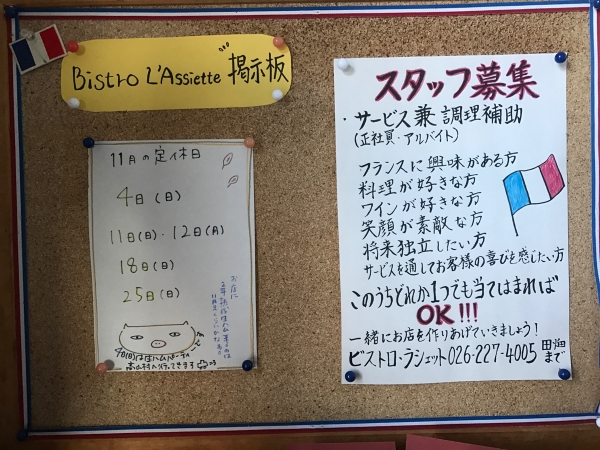 Bistro L'Assiette 掲示板
11月の定休日
4日(日)
11日(日)・12日(月)
18日(日)
25日(日)
お店に
スタッフ募集
・サービス兼調理補助
(正社員・アルバイト)
フランスに興味がある方
料理が好きな方
ワインが好きな方
笑顔が素敵な方
将来独立したい方
サービスを通してお客様の喜びを感じたい方
このうちどれか1つでも当てはまれば
OK!!!
一緒にお店を作りあげていきましょう!
ビストロ・ラシェット 026-227-4005
まで